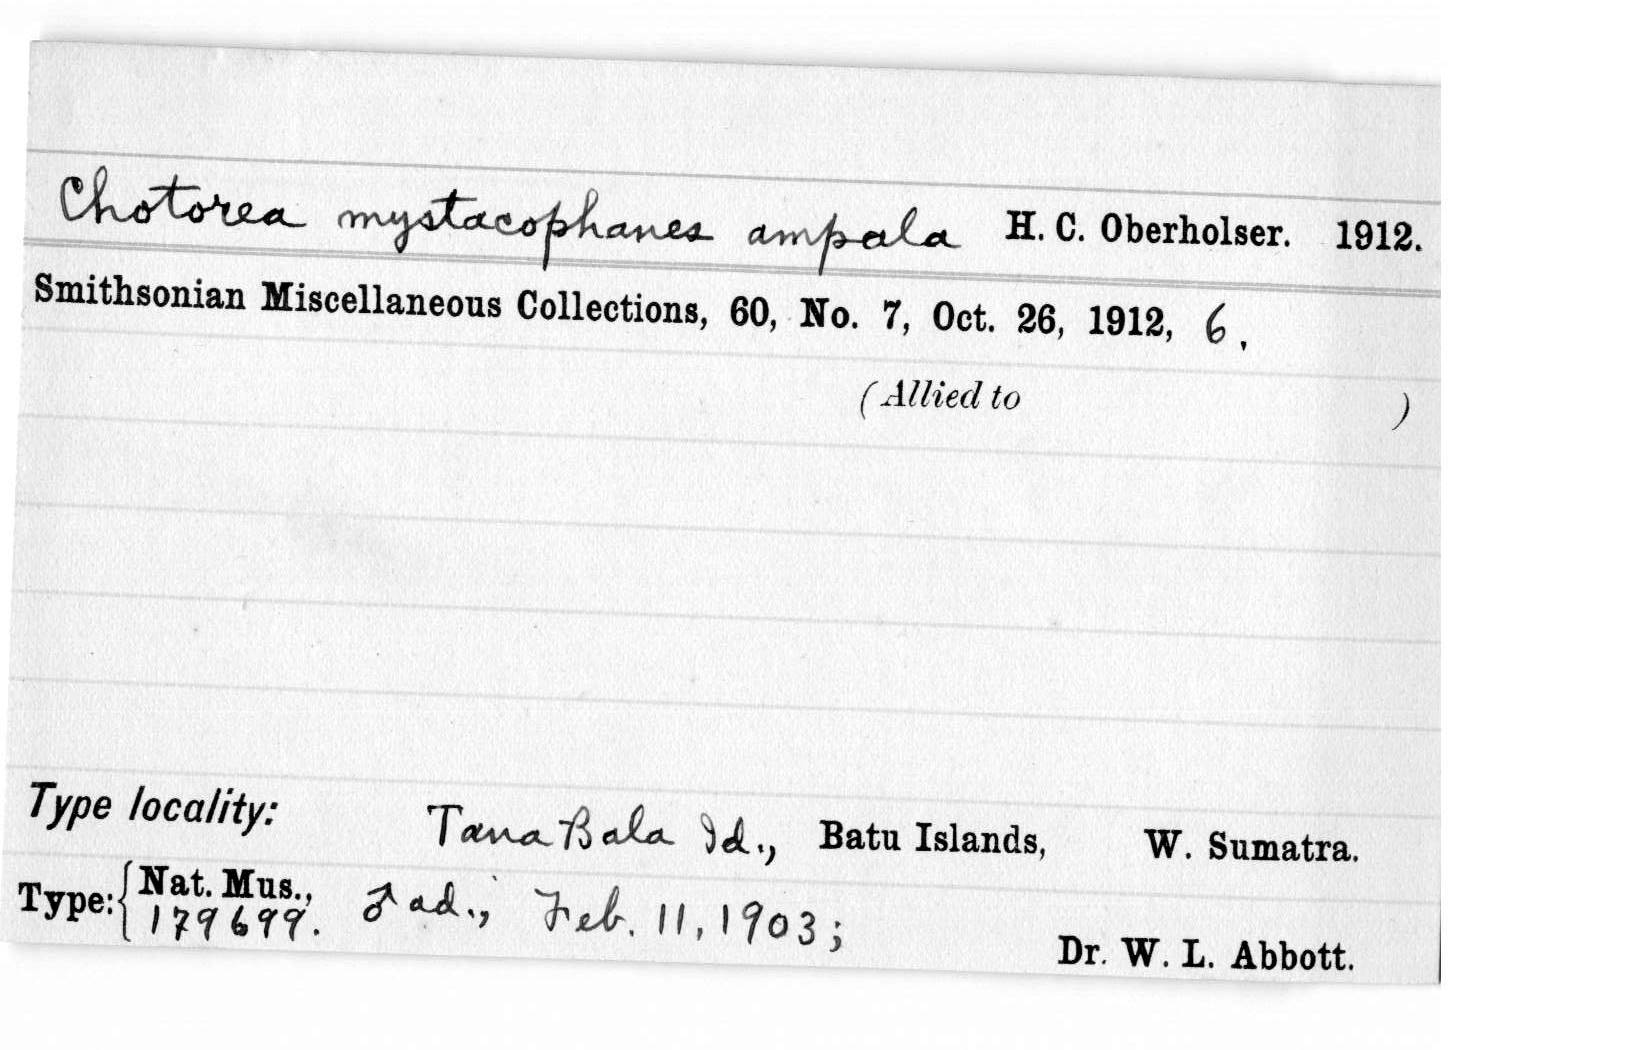 Chotorea mystacophanes ampala H. C. Oberholser. 1912.
Smithsonian Miscellaneous Collections, 60, No. 7, Oct. 26, 1912, 6.
(Allied to )
Type locality: Tana Bala Id., Batu Islands, W. Sumatra.
Type: { Nat. Mus., 179699. ♂ ad., Feb. 11, 1903; Dr. W. L. Abbott.